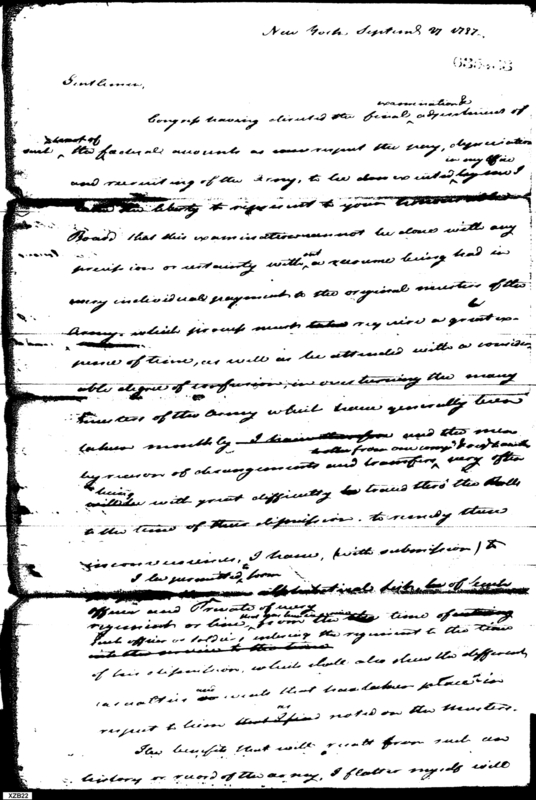 New York, Septemr 27 1787.
Gentlemen,
examination &
Congress having directed the final adjustment of
such part of the federal accounts as respect the pay, depreciation
in my office
and recruiting of the Army, to be done
take the liberty to represent to your honourable
Board that this examination cannot be done with any
precision or certainty without a recourse being had in
every individual payment to the original musters of the
Army, which process must require a great ex-
pense of time, as well as be attended with a consider-
able degree of confusion, in overturning the many
musters of the Army which have generally been
taken monthly I have therefore and the men
by reason of derangements and transfers very often
being with great difficulty traced thro' the Rolls
to the time of their dismission. to remedy these
inconveniencies, I have, (with submission) to
I be permitted to form
alphabetical lists of each
officer and Private of every
regiment or line, from the time of
such officer or soldier, entering the regiment to the time
into the service to the time
of his dismission, which shall also shew the different
casualties or events that has taken place in
respect to him as noted on the Musters.
The benefit that will result from such an
history or record of the army, I flatter myself will
XZB22